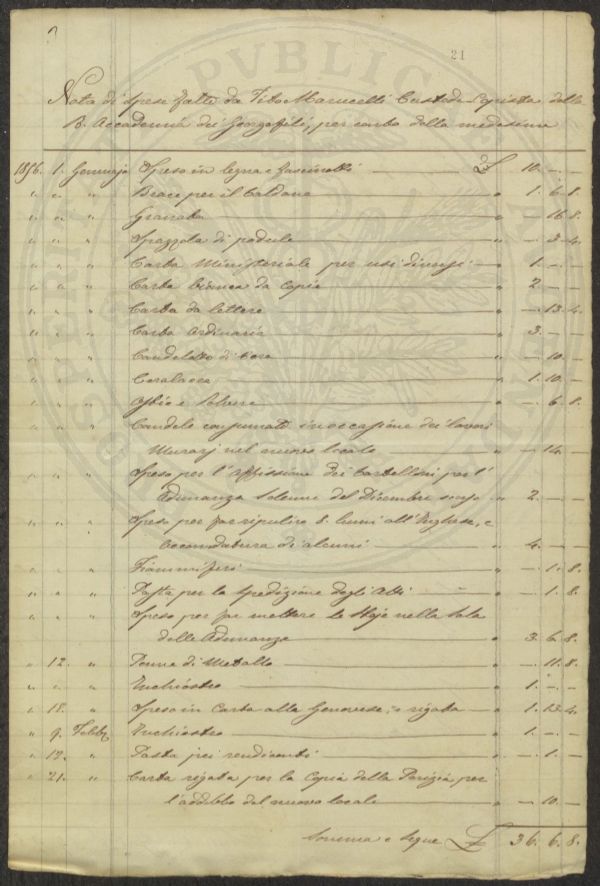 21
Nota di Spese fatte da Vito Marucelli Custode Copista della
R. Accademia dei Georgofili, per conto della medesima
1856. 1. Gennajo Spese in legna e fascinotti £ 10. — —
" " " Brace per il Caldano " 1. 6. 8.
" " " Granata " — 16. 8.
" " " Spazzola di padule " — 3. 4.
" " " Carta Ministeriale per usi diversi " 1. — —
" " " Carta bianca da Copie " 2. — —
" " " Carta da lettere " — 13. 4.
" " " Carta Ordinaria " 3. — —
" " " Candeletto di cera " — 10. —
" " " Ceralacca " 1. 10. —
" " " Ostie e " — 6. 8.
" " " Candele consumate in occasione dei lavori
Murarj nel nuovo locale " — 14. —
" " " Spese per l'affissione dei Cartelloni per l'
Adunanza Solenne del Dicembre scorso " 2. — —
" " " Spese per far ripulire 8. lumi all'Inglese, e
Accomodatura di alcuni " 4. — —
" " " Fiammiferi " — 1. 8.
" " " Pasta per la spedizione degli Atti " — 1. 8.
" " " Spese per far mettere le Stoje nella Sala
delle Adunanze " 3. 6. 8.
" 12. " Penne di Metallo " — 11. 8.
" " " Inchiostro " 1. — —
" 18. " Spese in Carta alla Genovese, e rigata " 1. 13. 4.
" 9. Febb. Inchiostro " 1. — —
" 19. " Pasta pei rendiconti " — 1. —
" 21. " Carta rigata per la Copia della Perizia per
l'addebbo del nuovo locale " — 10. —
Somma e segue £ 36. 6. 8.